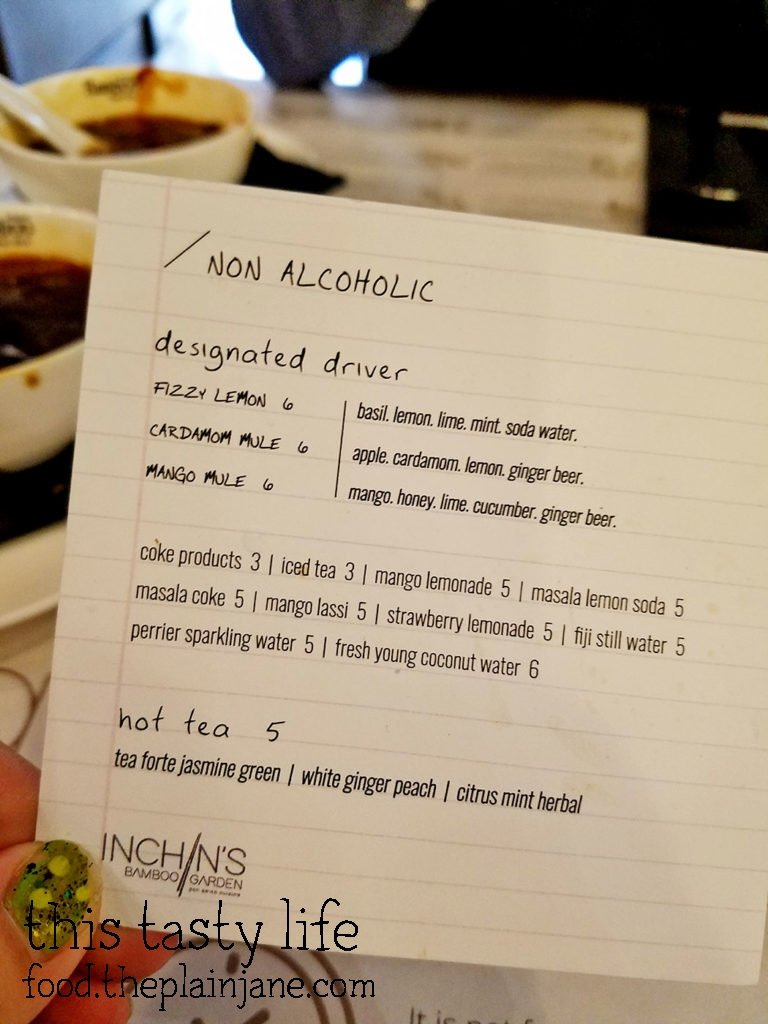 / NON ALCOHOLIC
designated driver
FIZZY LEMON 6
basil. lemon. lime. mint. soda water.
CARDAMOM MULE 6
apple. cardamom. lemon. ginger beer.
MANGO MULE 6
mango. honey. lime. cucumber. ginger beer.
coke products 3 | iced tea 3 | mango lemonade 5 | masala lemon soda 5
masala coke 5 | mango lassi 5 | strawberry lemonade 5 | fiji still water 5
perrier sparkling water 5 | fresh young coconut water 6
hot tea 5
tea forte jasmine green | white ginger peach | citrus mint herbal
INCHIN'S
BAMBOO GARDEN
pan asian cuisine
this tasty life
food.theplainjane.com
It is not